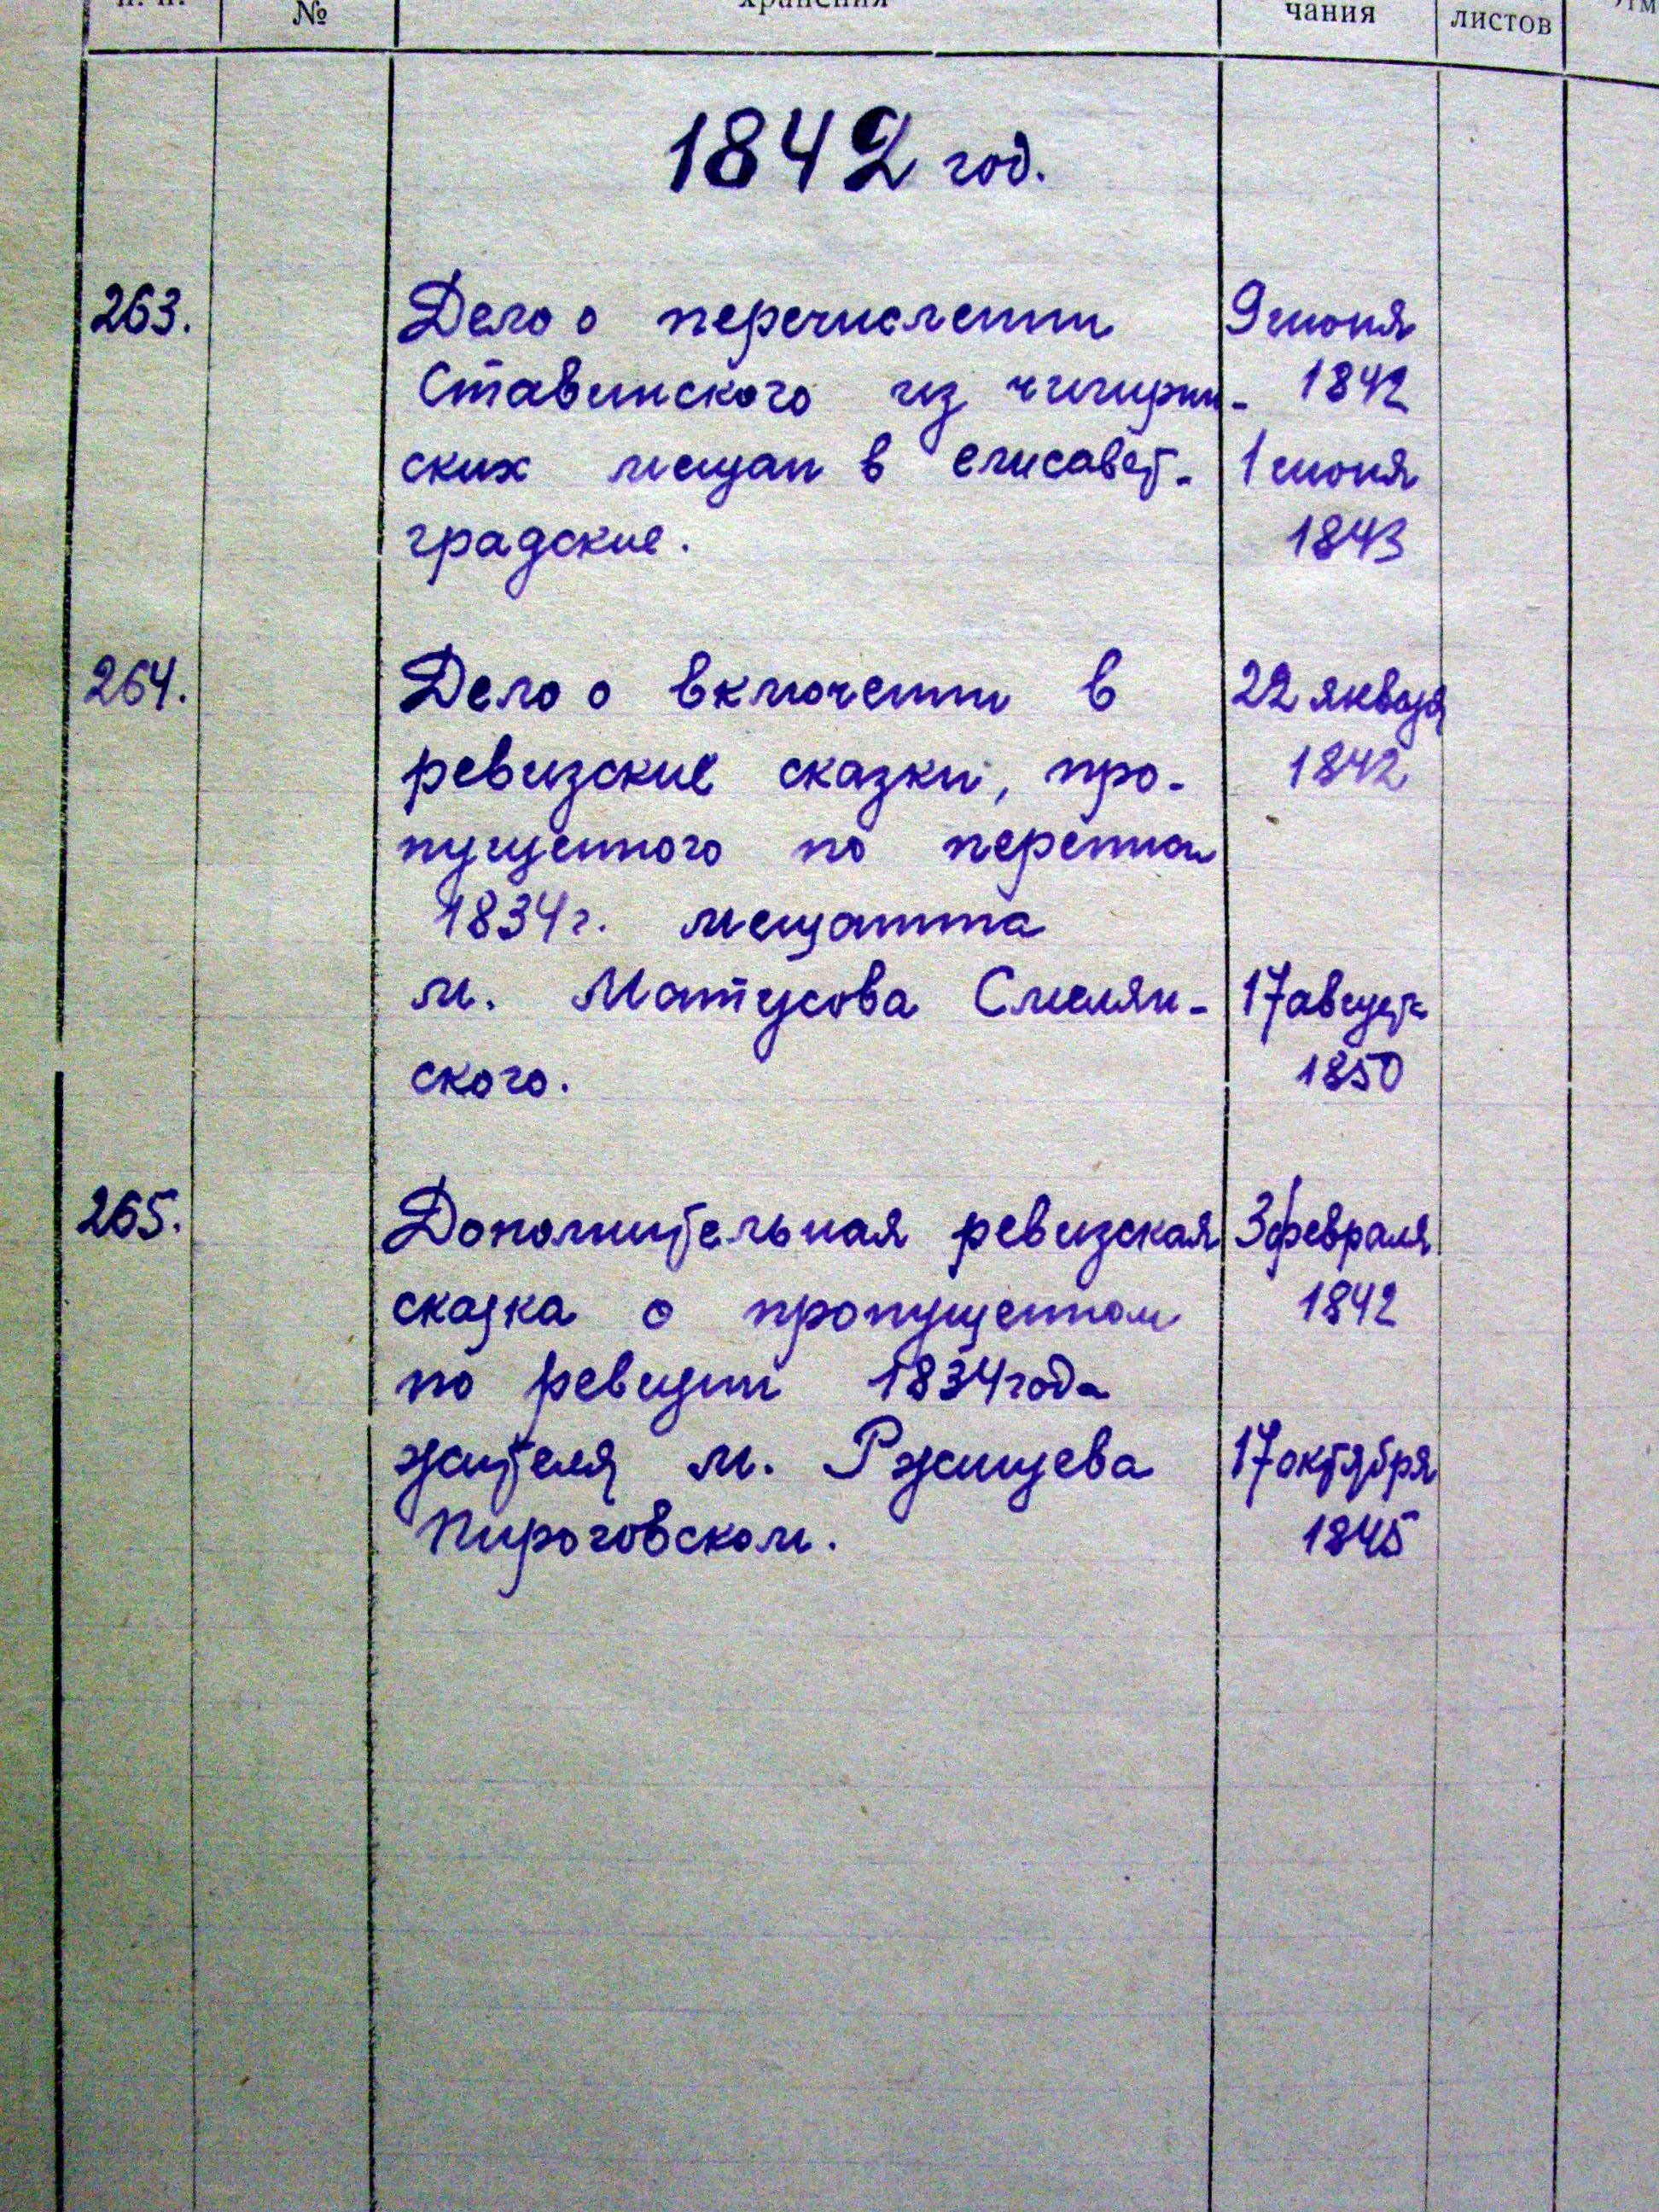 № хранения чания листов
1842 год.
263. Дело о перечислении 9 июня
Ставинского из чигирин- 1842
ских мещан в елисавет- 1 июня
градские. 1843
264. Дело о включении в 22 января
ревизские сказки, про- 1842
пущенного по переписи
1834 г. мещанина
м. Матусова Смелян- 17 августа
ского. 1850
265. Дополнительная ревизская 3 февраля
сказка о пропущенном 1842
по ревизии 1834 года
жителя м. Ржищева 17 октября
Пироговском. 1845